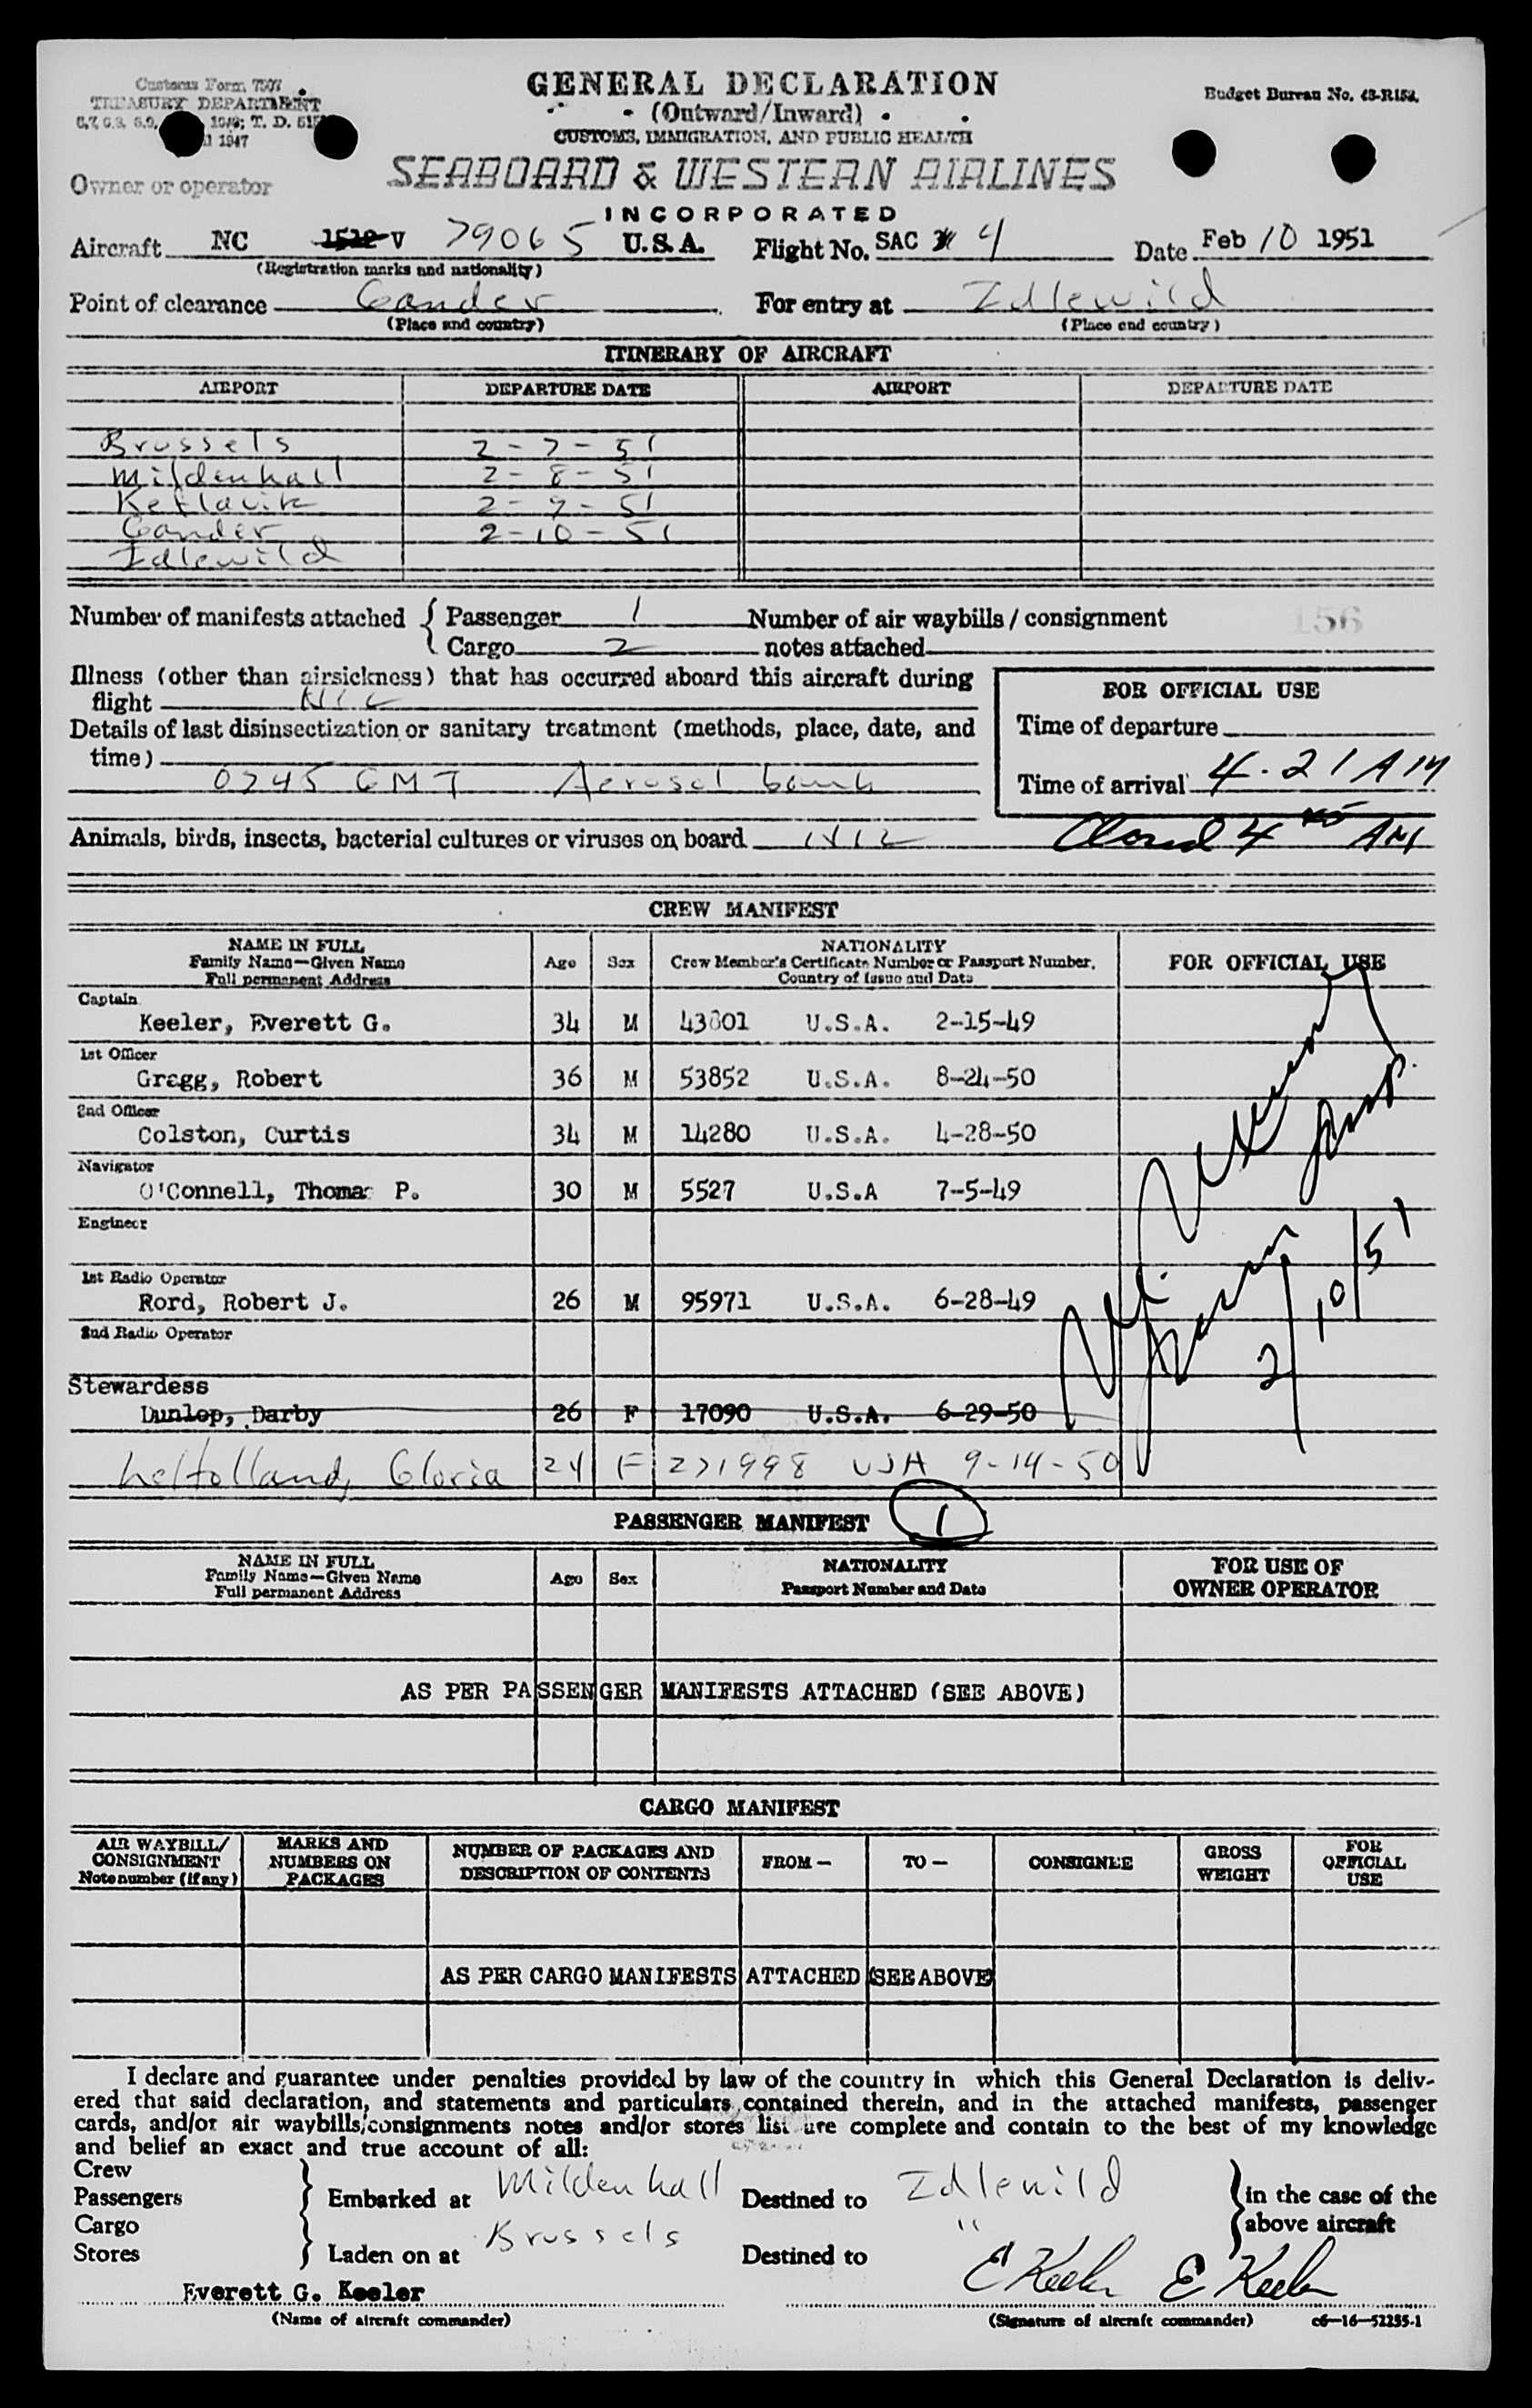 Customs Form 7507
TREASURY DEPARTMENT
1947
GENERAL DECLARATION
(Outward/Inward)
CUSTOMS, IMMIGRATION, AND PUBLIC HEALTH
Budget Bureau No.
Owner or operator
SEABOARD & WESTERN AIRLINES
INCORPORATED
Aircraft NC V 79065 U.S.A. Flight No. SAC 4 Date Feb 10 1951
(Registration marks and nationality)
Point of clearance Gander For entry at Idlewild
(Place and country) (Place and country)
ITINERARY OF AIRCRAFT
AIRPORT DEPARTURE DATE AIRPORT DEPARTURE DATE
Brussels 2-7-51
Mildenhall 2-8-51
Keflavik 2-9-51
Gander 2-10-51
Idlewild
Number of manifests attached { Passenger 1 Number of air waybills / consignment 156
Cargo 2 notes attached
Illness (other than airsickness) that has occurred aboard this aircraft during
flight NIL
FOR OFFICIAL USE
Details of last disinsectization or sanitary treatment (methods, place, date, and
time)
Time of departure
0745 GMT Aerosol bomb
Time of arrival 4.21 AM
Animals, birds, insects, bacterial cultures or viruses on board NIL
4 45 AM
CREW MANIFEST
NAME IN FULL
Family Name—Given Name
Full permanent Address
Age Sex
NATIONALITY
Crew Member's Certificate Number or Passport Number,
Country of Issue and Date
FOR OFFICIAL USE
Captain
Keeler, Everett G. 34 M 43801 U.S.A. 2-15-49
1st Officer
Gragg, Robert 36 M 53852 U.S.A. 8-24-50
2nd Officer
Colston, Curtis 34 M 14280 U.S.A. 4-28-50
Navigator
O'Connell, Thomas P. 30 M 5527 U.S.A 7-5-49
Engineer
1st Radio Operator
Rord, Robert J. 26 M 95971 U.S.A. 6-28-49
2nd Radio Operator
2/10/51
Stewardess
Dunlop, Darby 26 F 17090 U.S.A. 6-29-50
Gloria 24 F 271998 USA 9-14-50
PASSENGER MANIFEST 1
NAME IN FULL
Family Name—Given Name
Full permanent Address
Age Sex
NATIONALITY
Passport Number and Date
FOR USE OF
OWNER OPERATOR
AS PER PASSENGER MANIFESTS ATTACHED (SEE ABOVE)
CARGO MANIFEST
AIR WAYBILL/
CONSIGNMENT
Note number (if any)
MARKS AND
NUMBERS ON
PACKAGES
NUMBER OF PACKAGES AND
DESCRIPTION OF CONTENTS
FROM —
TO —
CONSIGNEE
GROSS
WEIGHT
FOR
OFFICIAL
USE
AS PER CARGO MANIFESTS ATTACHED (SEE ABOVE
I declare and guarantee under penalties provided by law of the country in which this General Declaration is deliv-
ered that said declaration, and statements and particulars contained therein, and in the attached manifests, passenger
cards, and/or air waybills/consignments notes and/or stores list are complete and contain to the best of my knowledge
and belief an exact and true account of all:
Crew
Passengers } Embarked at Mildenhall Destined to Idlewild } in the case of the
Cargo above aircraft
Stores } Laden on at Brussels Destined to "
Everett G. Keeler E Keeler E Keeler
(Name of aircraft commander) (Signature of aircraft commander) c6—16—52235-1